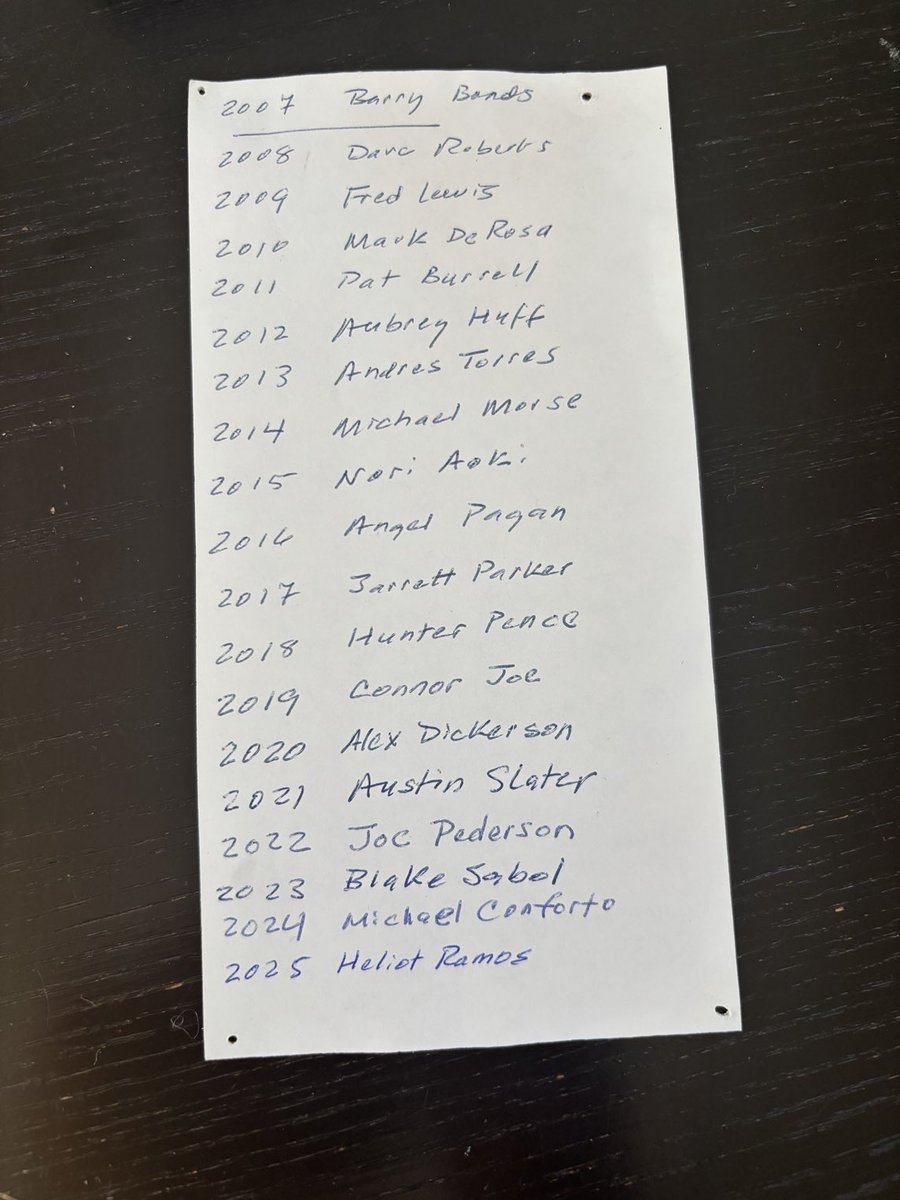 2007 Barry Bonds
2008 Dave Roberts
2009 Fred Lewis
2010 Mark DeRosa
2011 Pat Burrell
2012 Aubrey Huff
2013 Andres Torres
2014 Michael Morse
2015 Nori Aoki
2016 Angel Pagan
2017 Jarrett Parker
2018 Hunter Pence
2019 Connor Joe
2020 Alex Dickerson
2021 Austin Slater
2022 Joc Pederson
2023 Blake Sabol
2024 Michael Conforto
2025 Heliot Ramos